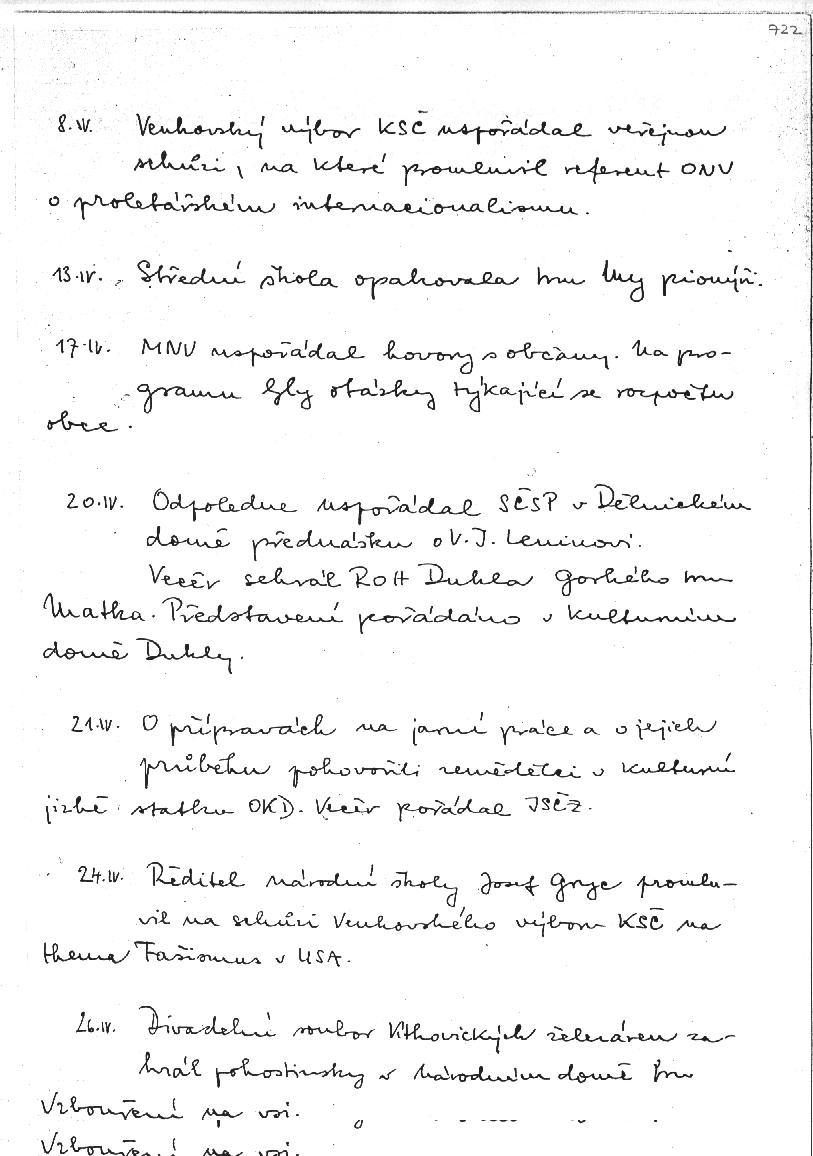 722
8.IV. Venkovský výbor KSČ uspořádal veřejnou
schůzi, na které promluvil referent ONV
o proletářském internacionalismu.
13.IV. Střední škola opakovala hru My pionýři.
17.IV. MNV uspořádal hovory s občany. Na pro-
gramu byly otázky týkající se rozpočtu
obce.
20.IV. Odpoledne uspořádal SČSP v Dělnickém
domě přednášku o V. I. Leninovi.
Večer sehrál ROH Dukla Gorkého hru
Matka. Představení pořádáno v kulturním
domě Dukly.
21.IV. O přípravách na jarní práce a o jejich
průběhu pohovořili zemědělci v kulturní
jizbě statku OKD. Večer pořádal JSČZ.
24.IV. Ředitel národní školy Josef promlu-
vil na schůzi Venkovského výboru KSČ na
thema Fašismus v USA.
26.IV. Divadelní soubor Vítkovických železáren za-
hrál pohostinsky v Národním domě hru
Vzbouření na vsi.
Vzbouření na vsi.